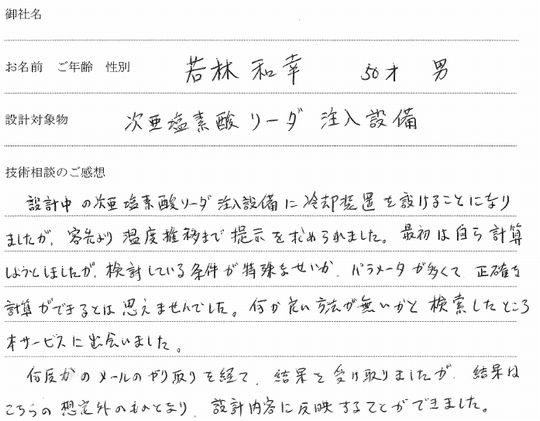 御社名
お名前 ご年齢 性別 若林 和幸 50才 男
設計対象物 次亜塩素酸リーダ 注入設備
技術相談のご感想
設計中の次亜塩素酸リーダ注入設備に冷却装置を設けることになり
ましたが、客先より温度推移まで提示を求められました。最初は自ら計算
しようとしましたが、検討している条件が特殊なせいか、パラメータが多くて、正確な
計算ができるとは思えませんでした。何か良い方法が無いかと検索したところ
本サービスに出会いました。
何度かのメールのやり取りを経て、結果を受け取りましたが、結果は
こちらの想定外のものとなり、設計内容に反映することができました。